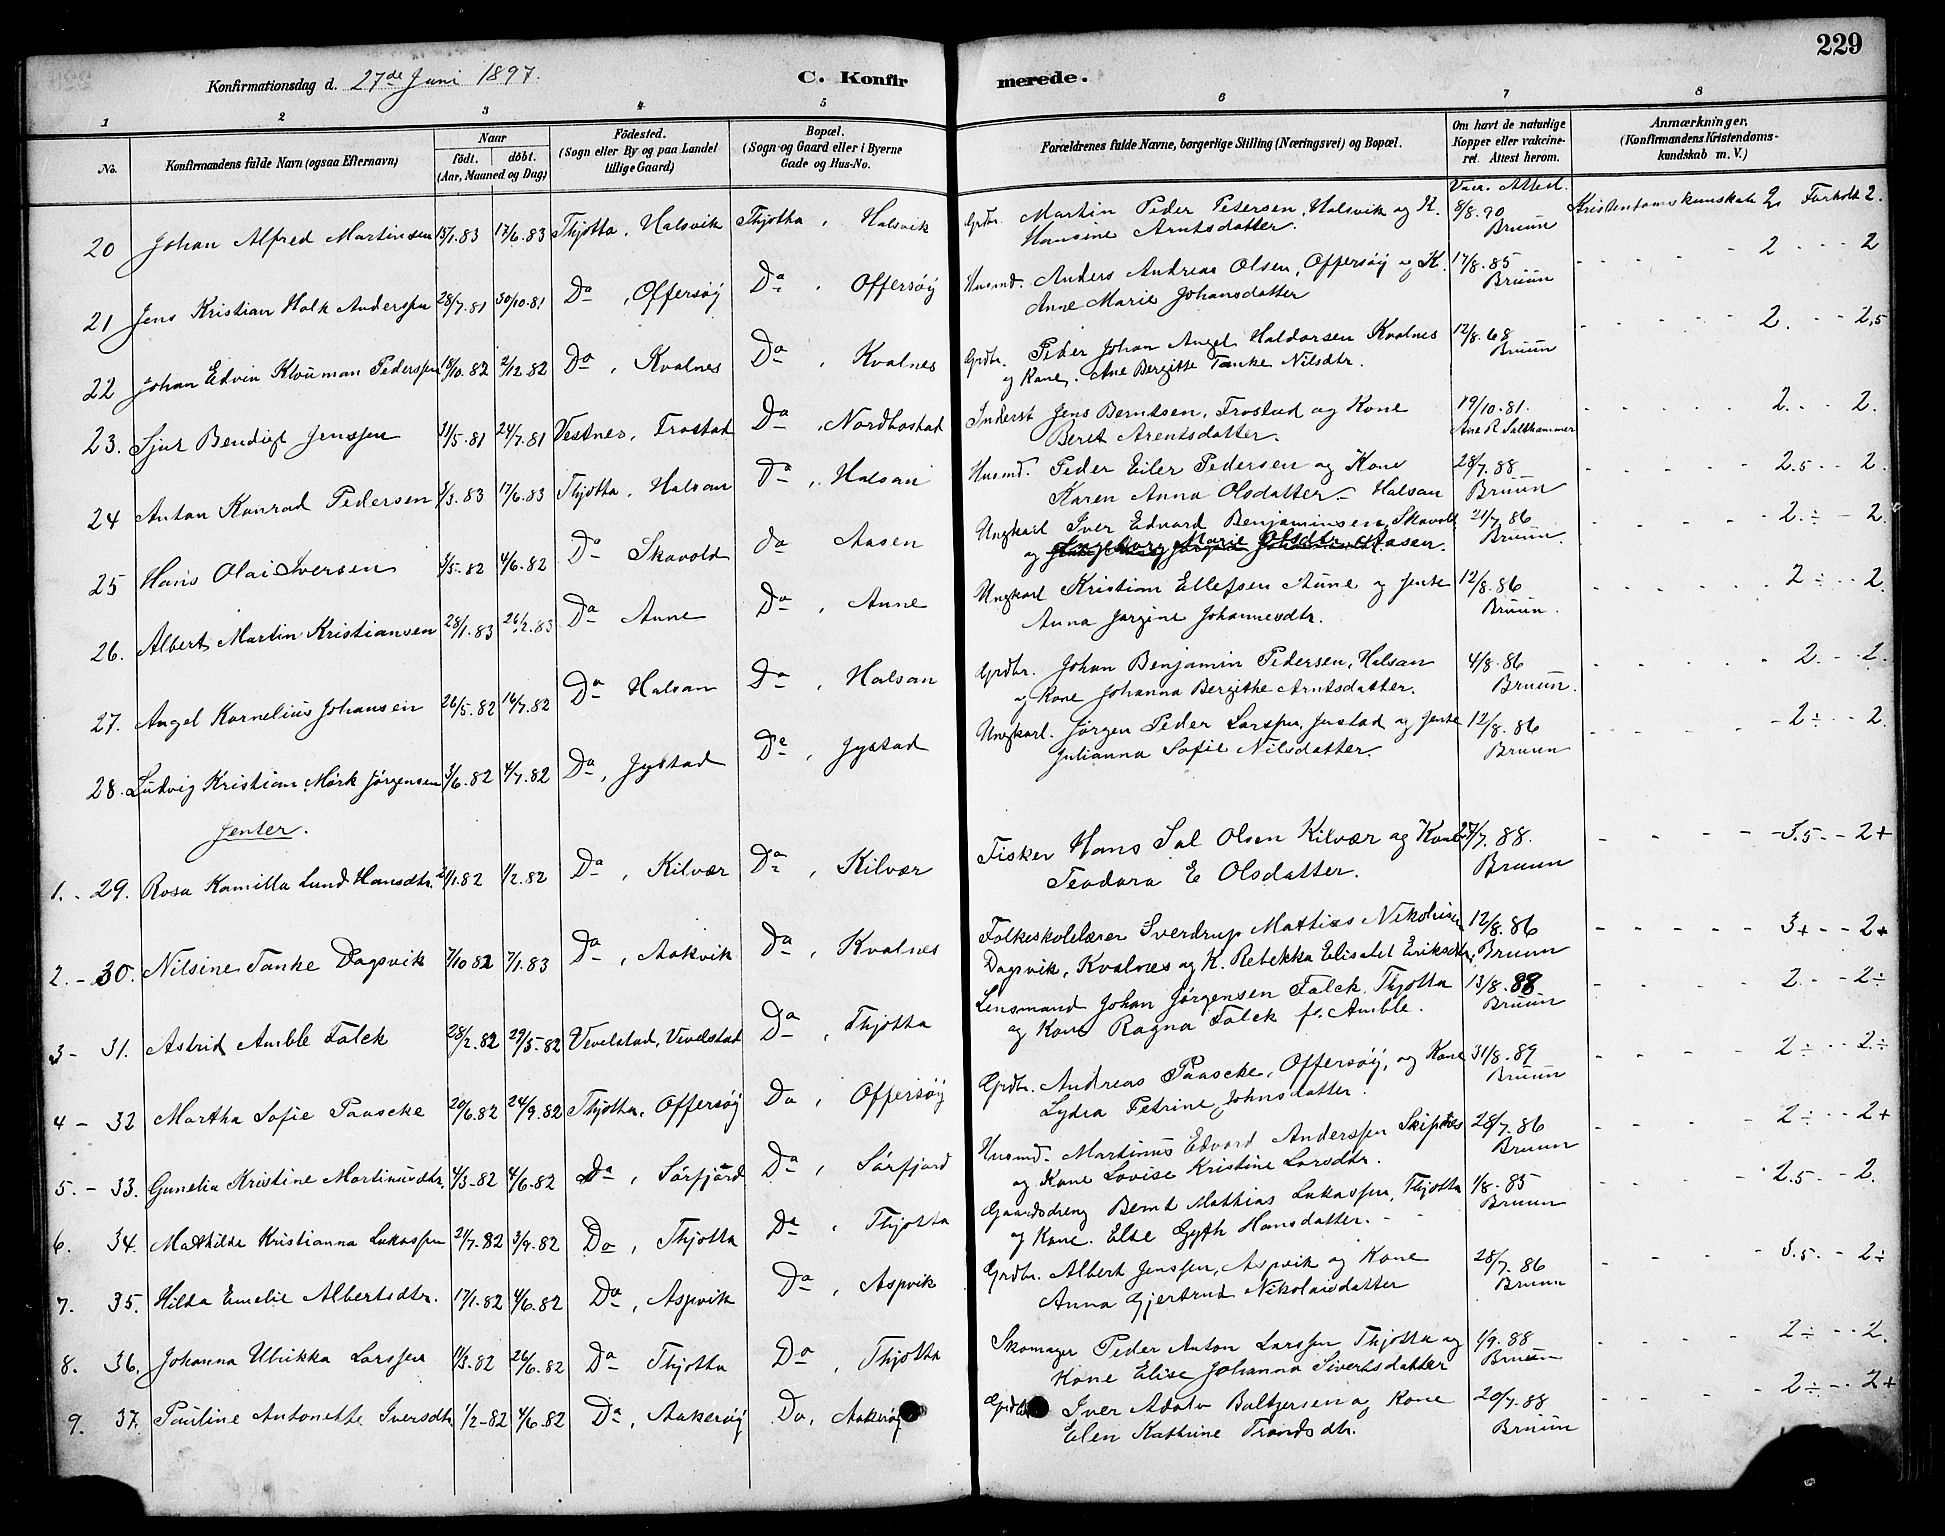 229
Konfirmationsdag d. 27de Juni 1897.
C. Konfirmerede.
1 2 3 4 5 6 7 8
No.
Konfirmandens fulde Navn (ogsaa Efternavn)
Naar
født. døbt.
(Aar, Maaned og Dag)
Födested.
(Sogn eller By og paa Landet
tillige Gaard)
Bopæl.
(Sogn og Gaard eller i Byerne
Gade og Hus-No.
Forældrenes fulde Navne, borgerlige Stilling (Næringsvei) og Bopæl.
Om havt de naturlige
Kopper eller vakcine-
ret. Attest herom.
Anmærkninger.
(Konfirmandens Kristendoms-
kundskab m. V.)
Vacc. Attest.
20 Johan Alfred Martinsen 15/1.83 17/6.83 Thjøtta, Halsvik Thjøtta, Halsvik Grdbr. Martin Peder Petersen, Halsvik og K. 8/8.90 Kristendomskundskab 2 Forhold 2.
Hansine Arntsdatter. Bruun
21 Jens Kristian Holk Anderssen 28/7.81 30/10.81 Da, Offersøy Da, Offersøy Husmd. Anders Andreas Olsen, Offersøy og K. 17/8.85 2 2
Anne Marie Johansdatter Bruun
22 Johan Edvin Klouman Pederssen 18/10.82 2/12.82 Da, Kvalnes Da, Kvalnes Grdbr. Peder Johan Angel Haldorsen Kvalnes 12/8.68 2. 2,5
og Kone. Ane Bergitte Tanke Nilsdtr. Bruun
23. Sjur Bendigt Jenssen 31/5.81 24/7.81 Vestnes, Frostad Da, Nordbostad Inderst Jens Berntsen, Frostad og Kone 19/10.81. 2. 2.
Beret Arentsdatter. Ane R. Salthammer
24 Anton Konrad Pedersen 3/3.83 17/6.83 Thjøtta, Halsan Da, Halsan Husmd. Peder Eiler Pedersen og Kone 28/7.88 2.5 2.
Karen Anna Olsdatter - Halsan Bruun
25 Hans Olai Iversen 1/5.82 4/6.82 Da Skavold da Aasen Ungkarl Iver Edvard Benjaminsen Skavold 21/7.86 2.÷ 2.
og Ingeborg Marie Olsdtr. Aasen. Bruun.
26. Albert Martin Kristiansen 28/1.83 26/2.83 Da Aune Da, Aune Ungkarl Kristian Ellefsen Aune og Jente 12/8.86 2 ÷ 2.
Anna Jørgine Johannesdtr. Bruun.
27. Angel Kornelius Johansen 26/5.82 16/7.82 Da Halsan Da, Halsan Grdbr. Johan Benjamin Pedersen, Halsan 4/8.86 2. 2.
og Kone Johanna Bergithe Arntsdatter. Bruun.
28. Ludvig Kristian Mørk Jørgensen 3/6.82 4/7.82 Da, Jystad Da, Jystad Ungkarl. Jørgen Peder Larssen, Jystad og Jente 12/8.86 2÷ 2.
Julianna Sofie Nilsdatter Bruun
Jenter.
1. - 29. Rosa Kamilla Lund Hansdtr. 1/2.82 Da, Kilvær Da, Kilvær Fisker Hans Sal Olsen Kilvær og Kone 27/7.88. 3.5 2+
Teodora E Olsdatter. Bruun
2. - 30. Nilsine Tanke Dagsvik 7/10 82 7/1.83 Da, Aakvik Da, Kvalnes Folkeskolelærer Sverdrup Mattias Nikolaisen 12/8.86 3+ 2+
Dagsvik, Kvalnes og K. Rebekka Elisabet Eriksdtr. Bruun
3 - 31. Astrid Amble Falck 28/2.82 29/5.82 Vevelstad, Vevelstad Da, Thjøtta Lensmand Johan Jørgensen Falck, Thjøtta 13/8.88 2. 2÷
og Kone Ragna Falck f. Amble. Bruun
4 - 32 Martha Sofie Paascke 20/6.82 24/9.82 Thjøtta, Offersøy Da, Offersøy Grdbr. Andreas Paascke, Offersøy, og Kone 31/8.89 2÷ 2÷
Lydia Petrine Johnsdatter. Bruun
5. - 33. Gunelia Kristine Martinusdtr. 4/3-82 4/6.82 Da, Sørfjord Da, Sørfjord Husmd. Martinus Edvard Anderssen 28/7.86 2÷ 2+
og Kone Lovise Kristine Larsdtr. Bruun
6. 34. Mathilde Kristianna Lukassen 21/7.82 3/9.82 Da, Thjøtta Da, Thjøtta Gaardsdreng Bernt Mathias Lukassen, Thjøtta 1/8.85 2.5 2.
og Kone. Else Gyth Hansdatter. Bruun
7. 35. Hilda Emelie Albertsdtr. 17/1.82 4/6.82 Da, Aspvik Da, Aspvik Grdbr. Albert Jenssen, Aspvik og Kone 28/7.86 3.5 2÷
Anna Gjertrud Nikolaisdatter Bruun
8. 36. Johanna Ulrikka Larssen 11/3.82 26/6.82 Da Thjøtta Da, Thjøtta Skomager Peder Anton Larssen Thjøtta og 1/9.88 2÷ 2.
Kone Elise Johanna Sivertsdatter Bruun
9. 37. Pauline Antonette Iversdtr. 1/2-82 4/6.82 Da, Aakerøy Da, Aakerøy Grdbr. Iver Adolv Baltzersen og Kone 20/7.88 2÷ 2+
Elen Kathrine Trondsdtr. Bruun